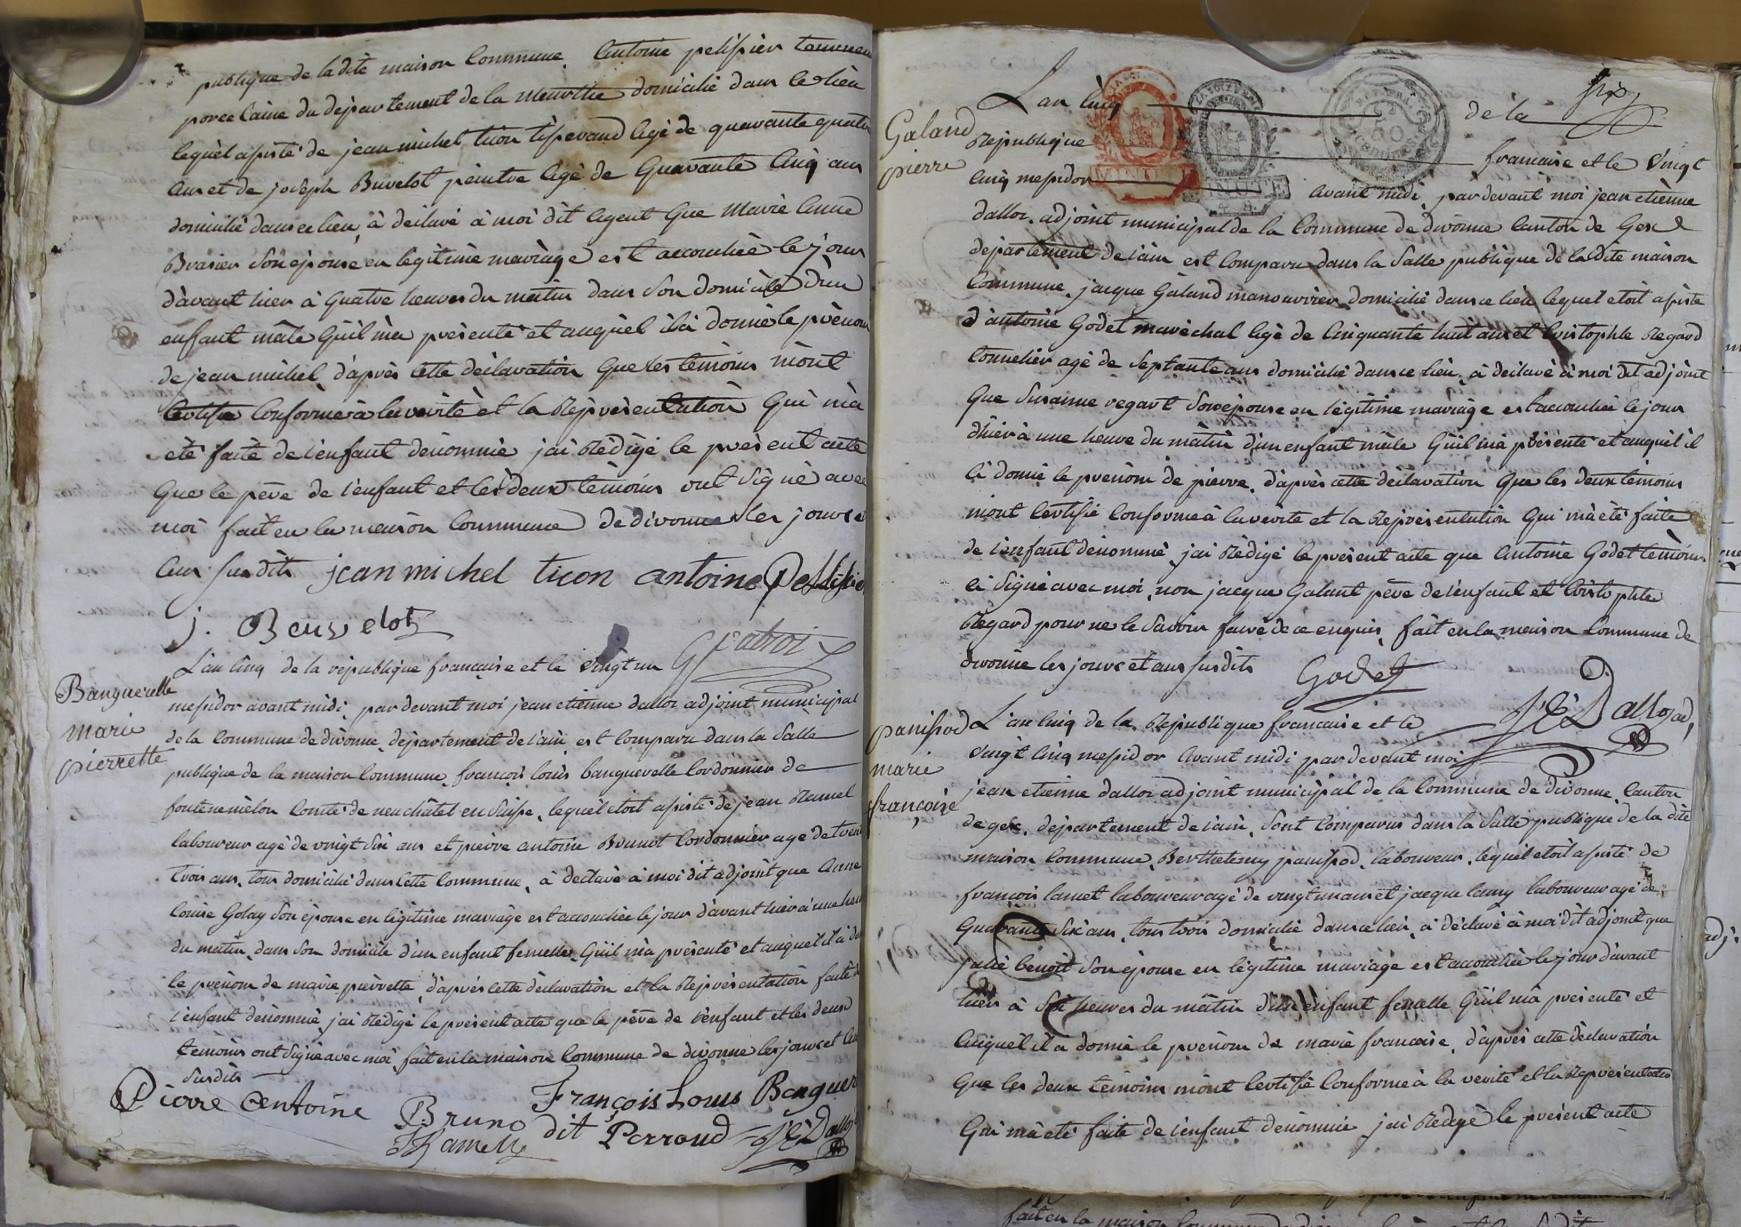 publique de la dite maison Commune, Antoine pelissier tourneur
porcelaine du departement de la meurthe domicilié dans ce lieu
lequel assisté de jean michel ticon agé de quarante quatre
ans et de joseph Buvelot peintre agé de Quarante Cinq ans
domicilié dans ce lieu, à declaré à moi dit agent que Marie Anne
Brasier son epouse en legitime mariage est accouchée le jour
d'avant hier à quatre heures du matin dans son domicile d'un
enfant mâle qu'il m'a presenté et auquel il à donné le prenom
de jean michel, d'après cette declaration que les temoins m'ont
Certifié Conforme à la verité et la Representation qui m'a
eté faite de l'enfant denommé j'ai Rédigé le present acte
que le père de l'enfant et les deux témoins ont signé avec
moi fait en la maison Commune de divonne les jours et
ans susdits jean michel ticon antoine Pellisie
j. Beuvelot
L'an Cinq de la république française et le vingt un
Banguerelle
marie
pierrette
messidor avant midi, par devant moi jean etienne dalloz adjoint municipal
de la Commune de divonne, departement de l'ain, est Comparu dans la Salle
publique de la maison Commune, françois louis banguerelle Cordonnier de
fontenemelon Comté de neuchâtel en Suisse, lequel étoit assisté de jean Ramel
laboureur agé de vingt Six ans et pierre antoine Brunot Cordonnier agé de trente
trois ans, tous domicilié dans Cette Commune, à declaré à moi dit adjoint que Anne
louise Golay Son épouse en légitime mariage est accouchée le jour d'avant hier à une heure
du matin, dans Son domicile d'un enfant femelle qu'il m'a présenté et auquel il à do
le prénom de marie pierrette, d'après cette déclaration et la Représentation faite de
l'enfant dénommé, j'ai Rédigé le présent acte que le père de l'enfant et les deux
témoins ont Signé avec moi, fait en la maison Commune de divonne les jours et ans
susdits
Pierre Antoine Bruno
François Louis Banguer
dit Perroud
JE Dalloz
L'an Cinq de la
Galand
pierre
Republique française et le Vingt
Cinq messidor avant midi, par devant moi jean etienne
dalloz, adjoint municipal de la Commune de divonne Canton de Gex
departement de l'ain est Comparu dans la Salle publique de la dite maison
Commune, jacque Galand manouvrier domicilié dans ce lieu lequel etoit assisté
d'antoine Godet maréchal agé de Cinquante huit ans et Cristophle Regard
Tonnelier agé de Septante ans domicilié dans ce lieu, à déclaré à moi dit adjoint
Que Susanne regart Son épouse en légitime mariage est accouchée le jour
d'hier à une heure du mâtin d'un enfant mâle qu'il m'a présenté et auquel il
à donné le prenom de pierre, d'après cette déclaration Que les deux témoins
m'ont Certifié Conforme à la verité et la Représentation Qui m'a été faite
de l'enfant dénommé, j'ai Rédigé le present acte que Antoine Godet témoin
à Signé avec moi, non jacque Galant père de l'enfant et Cristophle
Regard pour ne le Savoir faire de ce enquis, fait en la maison Commune de
divonne les jours et ans susdits
Godet
JE Dalloz ad,
panissod
marie
françoise
L'an Cinq de la République française et le
vingt Cinq messidor avant midi par devant moi
jean etienne dalloz adjoint municipal de la Commune de divonne, Canton
de gex, departement de l'ain, Sont Comparus dans la Salle publique de la dite
maison Commune, Berthelemy panissod, laboureur, lequel etoit assisté de
françois lanet laboureur agé de vingt neuf ans et jacque lanry laboureur agé de
Quarante Six ans, tous trois domicilié dans ce lieu, à déclaré à moi dit adjoint que
julie benoit Son épouse en légitime mariage est accouchée le jour d'avant
hier à Six heures du matin d'un enfant femelle qu'il m'a présenté et
Auquel il à donné le prenom de marie francoise, d'après cette déclaration
Que les deux témoins m'ont Certifié Conforme à la verité et la Représentation
Qui m'a été faite de l'enfant dénommé j'ai Rédigé le présent acte
fait en la maison